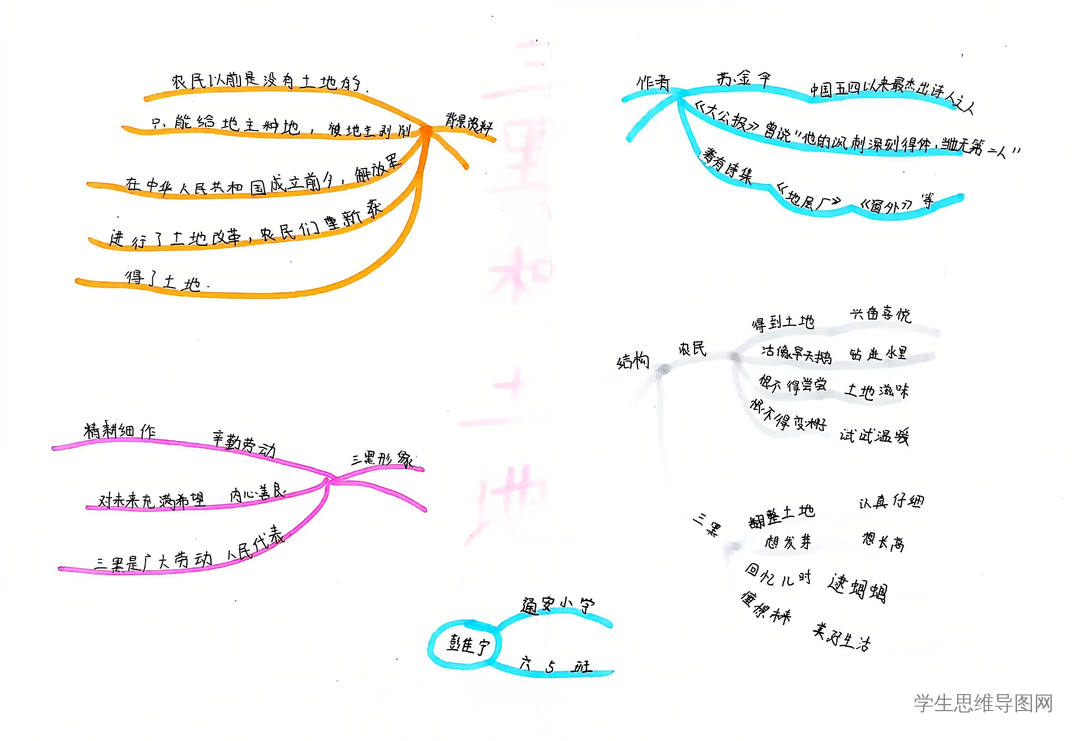 三黑和土地
农民以前是没有土地的.
只能给地主种地，被地主剥削
背景资料
在中华人民共和国成立前夕，解放军
进行了土地改革，农民们重新获
得了土地.
作者
苏金伞
中国五四以来最杰出诗人之人
《大公报》曾说"他的讽刺深刻得体，当她无第二人"
著有诗集
《地层厂》
《窗外》等
结构
农民
得到土地 兴奋喜悦
活像旱天鹅 钻进水里
恨不得尝尝 土地滋味
恨不得变棵 试试温暖
三黑
翻整土地 认真仔细
想发芽 想长高
回忆儿时 逮蝈蝈
憧憬未来 美好生活
三黑形象
精耕细作 辛勤劳动
对未来充满希望 内心善良
三黑是广大劳动人民代表
彭佳宁
通安小学
六 5 班
学生思维导图网